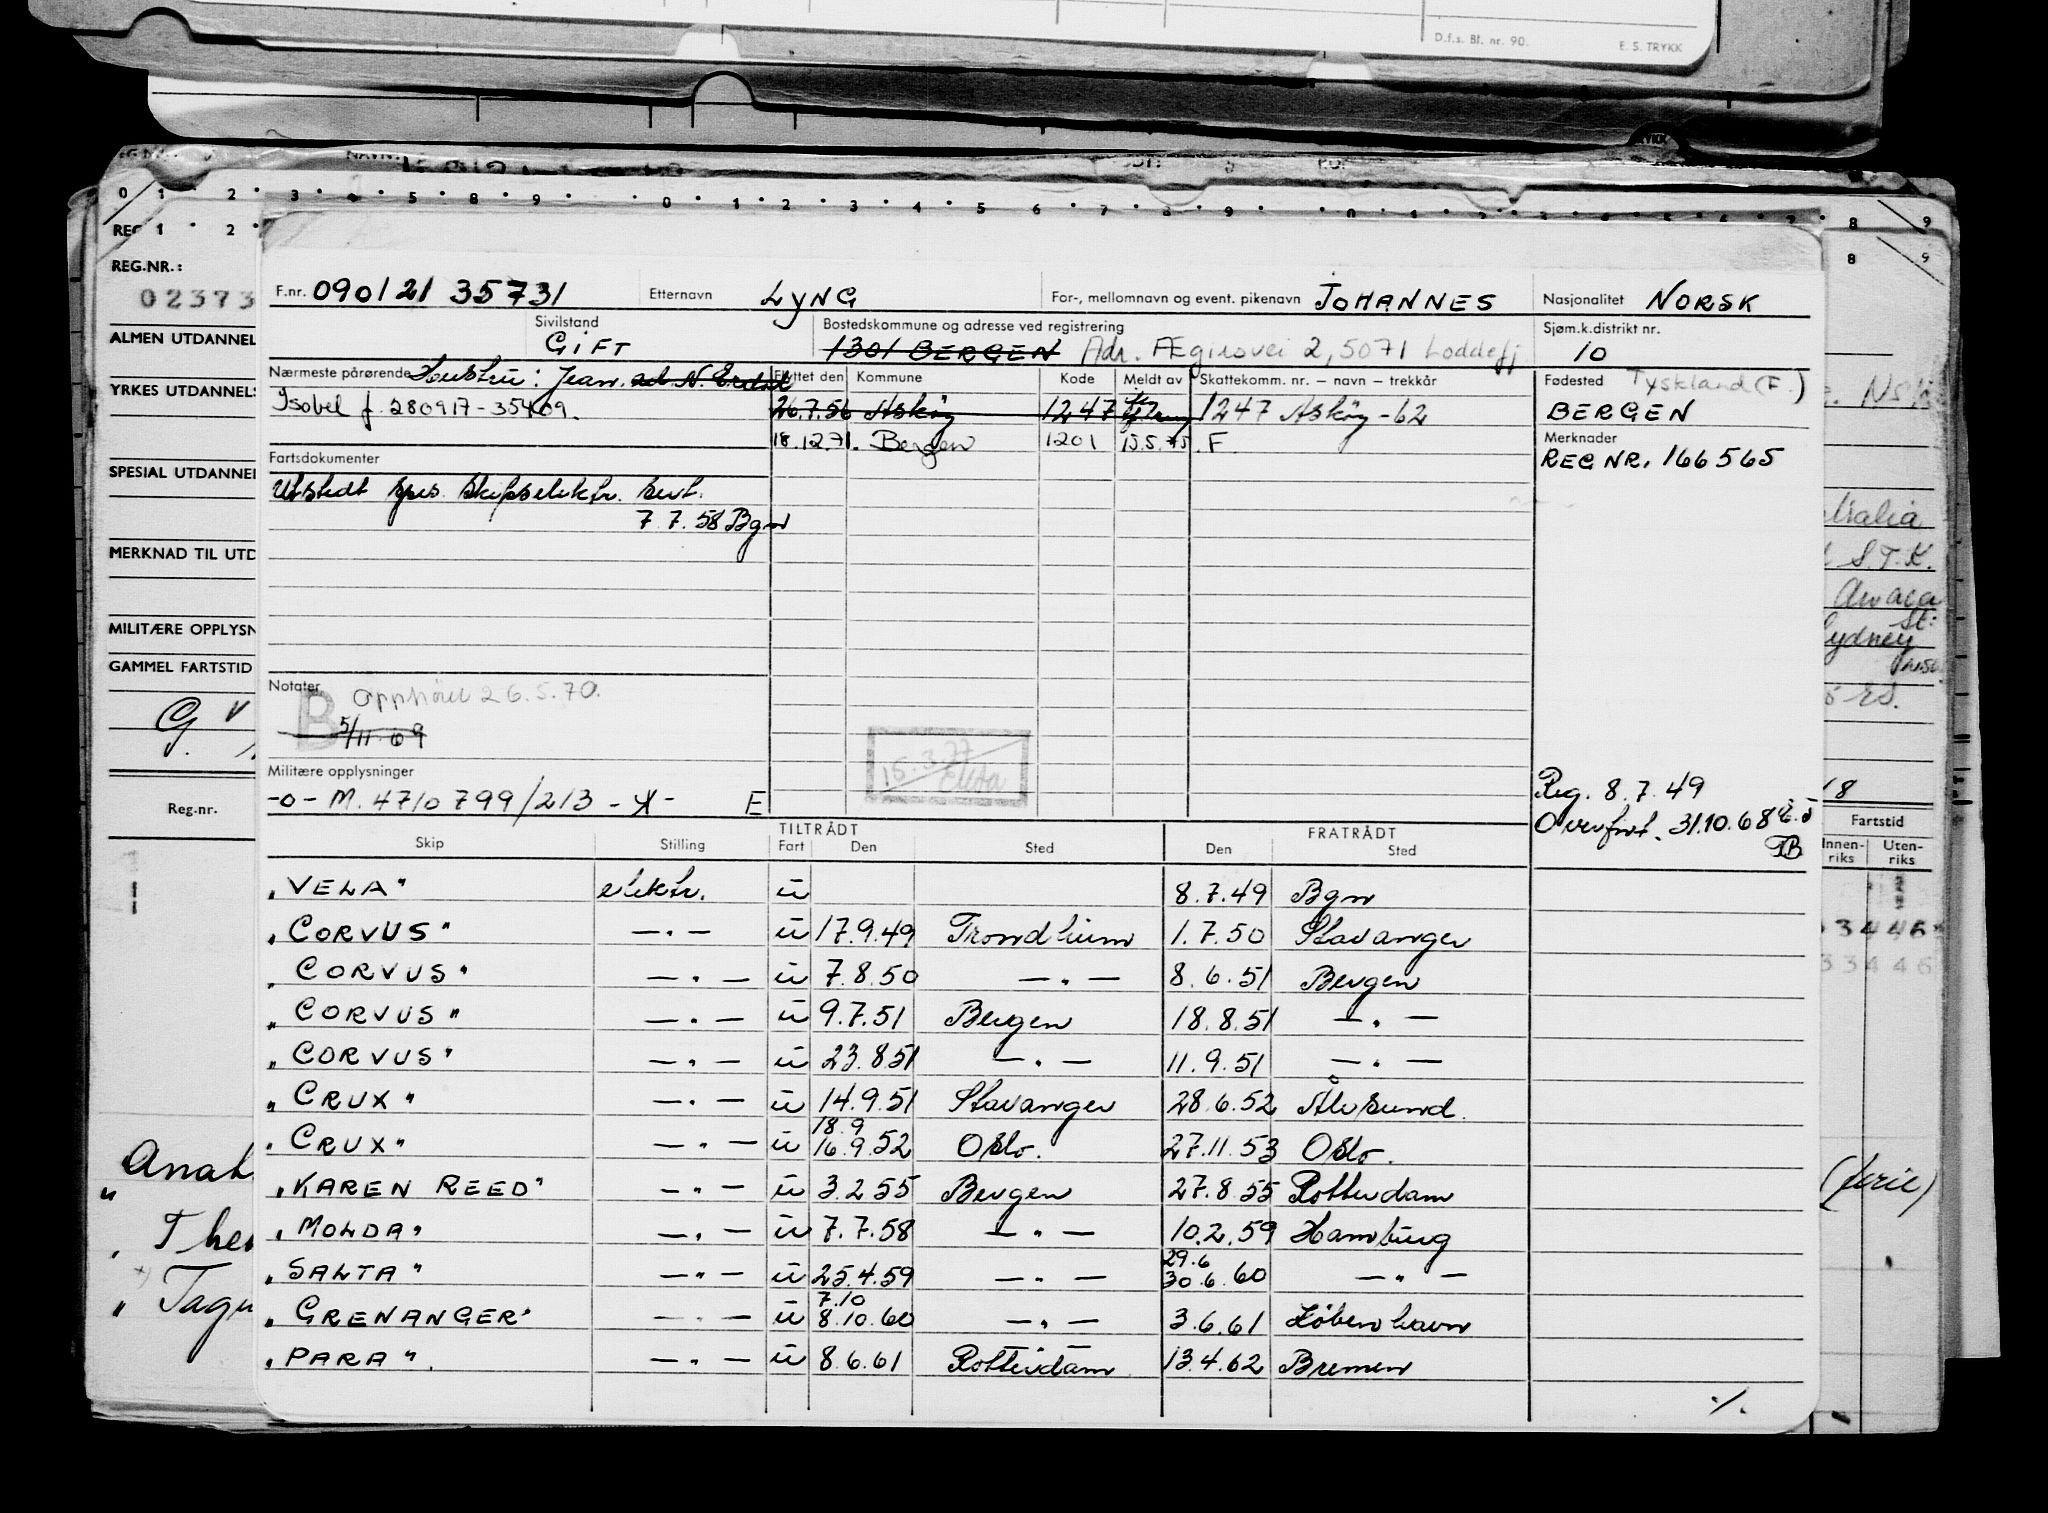 D.f.s. Bl. nr. 90. E. S. TRYKK
0 1 2 3 4 5 8 9 0 1 2 3 4 5 6 7 8 9
REG.NR.:
02373
ALMEN UTDANNEL
YRKES UTDANNELS
SPESIAL UTDANNEL
MERKNAD TIL UTD
MILITÆRE OPPLYSN
GAMMEL FARTSTID
Reg.nr.
F.nr. 090121 35731 Etternavn LYNG For-, mellomnavn og event. pikenavn JOHANNES Nasjonalitet NORSK
Sivilstand GIFT Bostedskommune og adresse ved registrering 1301 BERGEN Adr. Ægirsvei 2, 5071 Loddefj Sjøm.k.distrikt nr. 10
Nærmeste pårørende Hustru: Jean Flyttet den Kommune Kode Meldt av Skattekomm. nr. – navn – trekkår Fødested Tyskland (F.)
Isobel f. 280917-35409. 26.7.56 Askøy 1247 1247 Askøy-62 BERGEN
18.12.71. Bergen 1201 15.5.75 F. Merknader
Fartsdokumenter REG NR. 166565
Utstedt spes. skipselektr. sert.
7.7.58 Bgn
Notater
B Opphört 26.5.70.
5/11.69
15.3.77
Militære opplysninger
-o- M. 4710799/213 - E
Reg. 8.7.49
Overført. 31.10.68
TB
Skip Stilling TILTRÅDT Fart Den Sted FRATRÅDT Den Sted
"VELA" elektr. u 8.7.49 Bgn
"CORVUS" — " — u 17.9.49 Trondheim 1.7.50 Stavanger
"CORVUS" — " — u 7.8.50 — " — 8.6.51 Bergen
"CORVUS" — " — u 9.7.51 Bergen 18.8.51 — " —
"CORVUS" — " — u 23.8.51 — " — 11.9.51 — " —
"CRUX" — " — u 14.9.51 Stavanger 28.6.52 Ålesund.
"CRUX" — " — u 18.9 16.9.52 Oslo. 27.11.53 Oslo.
"KAREN REED" — " — u 3.2.55 Bergen 27.8.55 Rotterdam
"MOLDA" — " — u 7.7.58 — " — 10.2.59 Hamburg
"SALTA" — " — u 25.4.59 — " — 29.6 30.6.60 — " —
"GRENANGER" — " — u 7.10 8.10.60 — " — 3.6.61 København
"PARA". — " — u 8.6.61 Rotterdam 13.4.62 Bremen
./.
S.T.K.
Sydney
18
Fartstid
Innen-riks Uten-riks
33446
(ferie)